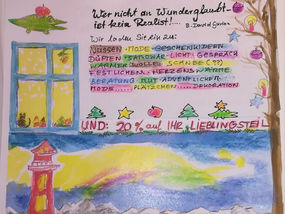 Wer nicht an Wunder glaubt -
ist kein Realist!....
B. David Gurion
Wir laden Sie ein zu:
NÜSSEN - MODE - GESCHENKIDEEN
DÜFTEN LICHT GESPRÄCH
WARMER SCHNEE (??)
FESTLICHEN HERZENSWÄRME
BERATUNG ADVENTLICHER
MODE..... PLÄTZCHEN ..... DEKORATION
UND: 20 % auf IHR LIEBLINGSTEIL